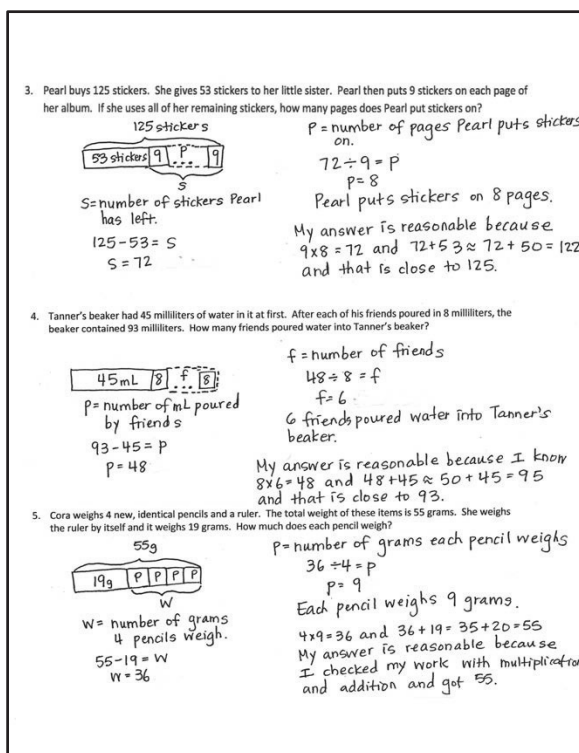 3. Pearl buys 125 stickers. She gives 53 stickers to her little sister. Pearl then puts 9 stickers on each page of
her album. If she uses all of her remaining stickers, how many pages does Pearl put stickers on?
125 stickers
53 stickers 9 P ... 9
S
S = number of stickers Pearl
has left.
125 - 53 = S
S = 72
P = number of pages Pearl puts stickers
on.
72 ÷ 9 = P
P = 8
Pearl puts stickers on 8 pages.
My answer is reasonable because
9 x 8 = 72 and 72 + 53 ≈ 72 + 50 = 122
and that is close to 125.
4. Tanner's beaker had 45 milliliters of water in it at first. After each of his friends poured in 8 milliliters, the
beaker contained 93 milliliters. How many friends poured water into Tanner's beaker?
45 mL 8 f ... 8
P = number of mL poured
by friends
93 - 45 = P
P = 48
f = number of friends
48 ÷ 8 = f
f = 6
6 friends poured water into Tanner's
beaker.
My answer is reasonable because I know
8 x 6 = 48 and 48 + 45 ≈ 50 + 45 = 95
and that is close to 93.
5. Cora weighs 4 new, identical pencils and a ruler. The total weight of these items is 55 grams. She weighs
the ruler by itself and it weighs 19 grams. How much does each pencil weigh?
55g
19g P P P P
W
W = number of grams
4 pencils weigh.
55 - 19 = W
W = 36
P = number of grams each pencil weighs
36 ÷ 4 = p
p = 9
Each pencil weighs 9 grams.
4 x 9 = 36 and 36 + 19 = 35 + 20 = 55
My answer is reasonable because
I checked my work with multiplication
and addition and got 55.